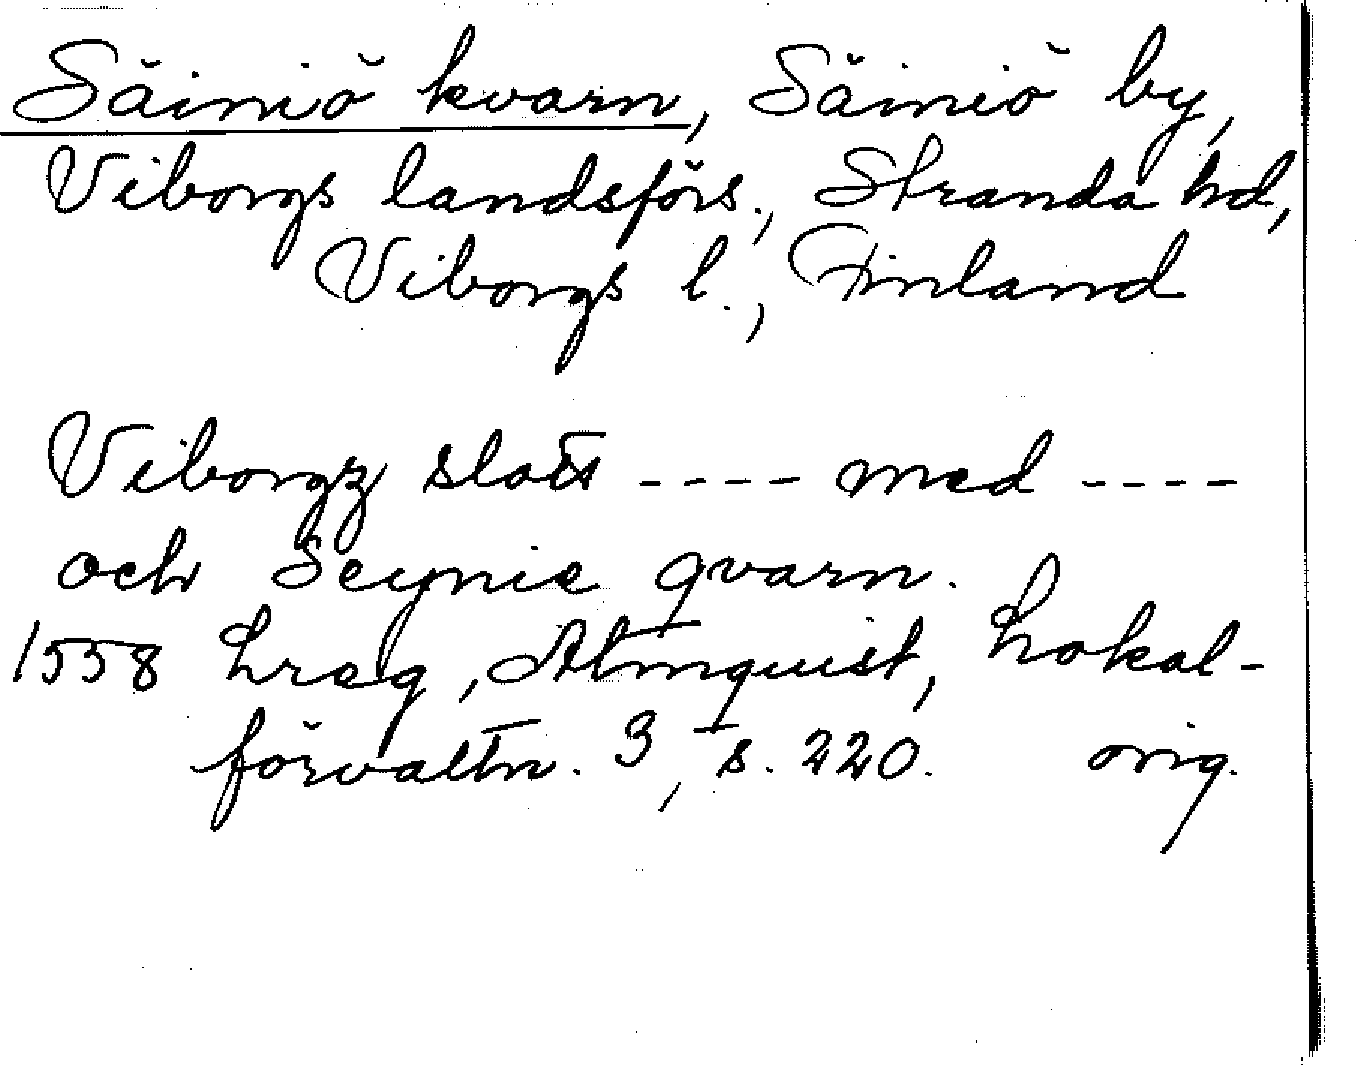 Säiniö kvarn, Säiniö by,
Viborgs landsförs., Stranda hd,
Viborgs l., Finland
Viborgz slott ---- med ----
och Seynie qvarn.
1558 Lreg, Almquist, Lokal-
förvaltn. 3, s. 220. orig.